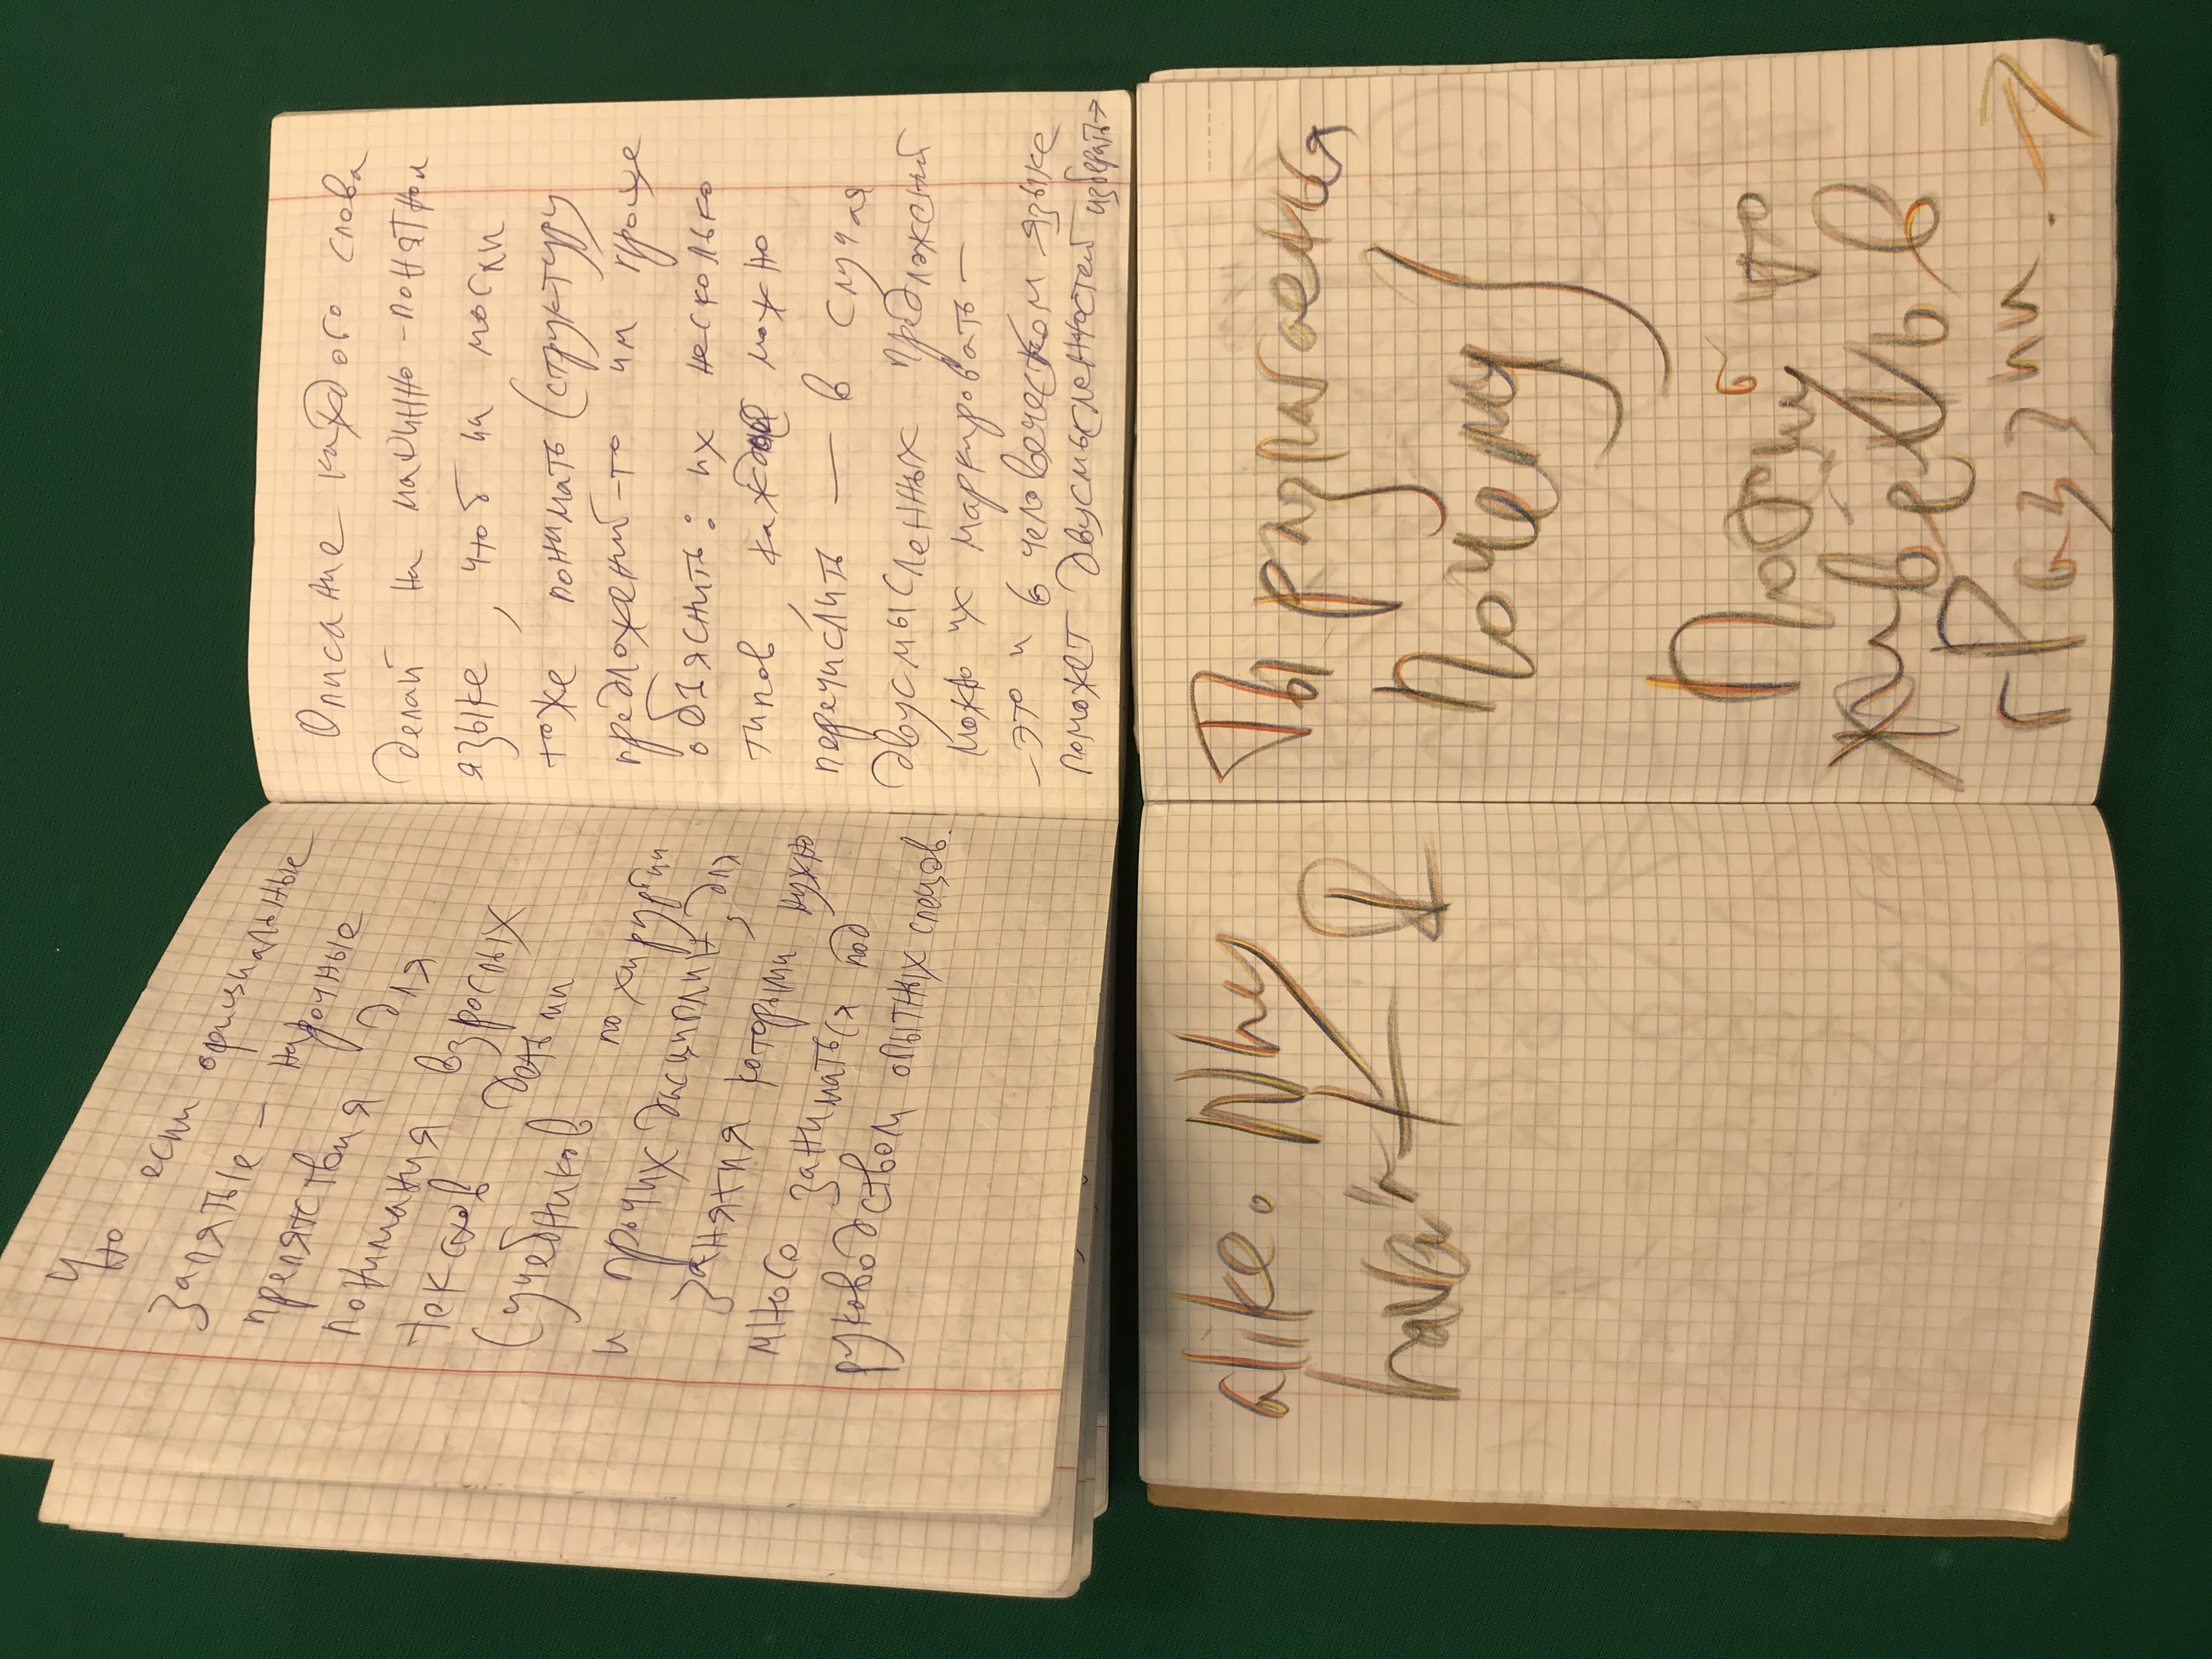 Что
если официальные
запятые – нарочные
препятствия для
понимания взрослых
текстов детьми
(учебников по хирургии
и прочих дисциплин, для
занятия которыми нужно
много заниматься под
руководством опытных спецов.
Описание каждого слова
делай на машинно-понятном
языке, чтоб и маски
тоже понимать (структуру
предложений-то им проще
объяснить: их несколько
типов, каждое можно
перечислить — в случая
двусмысленных предложений
можно их маркировать –
– это и в человеческом языке
поможет двусмысленностей изберать→
alike. Why
haven't I
Ты разлагаешься
Почему
Потому что
живёшь в
гРаззии. →